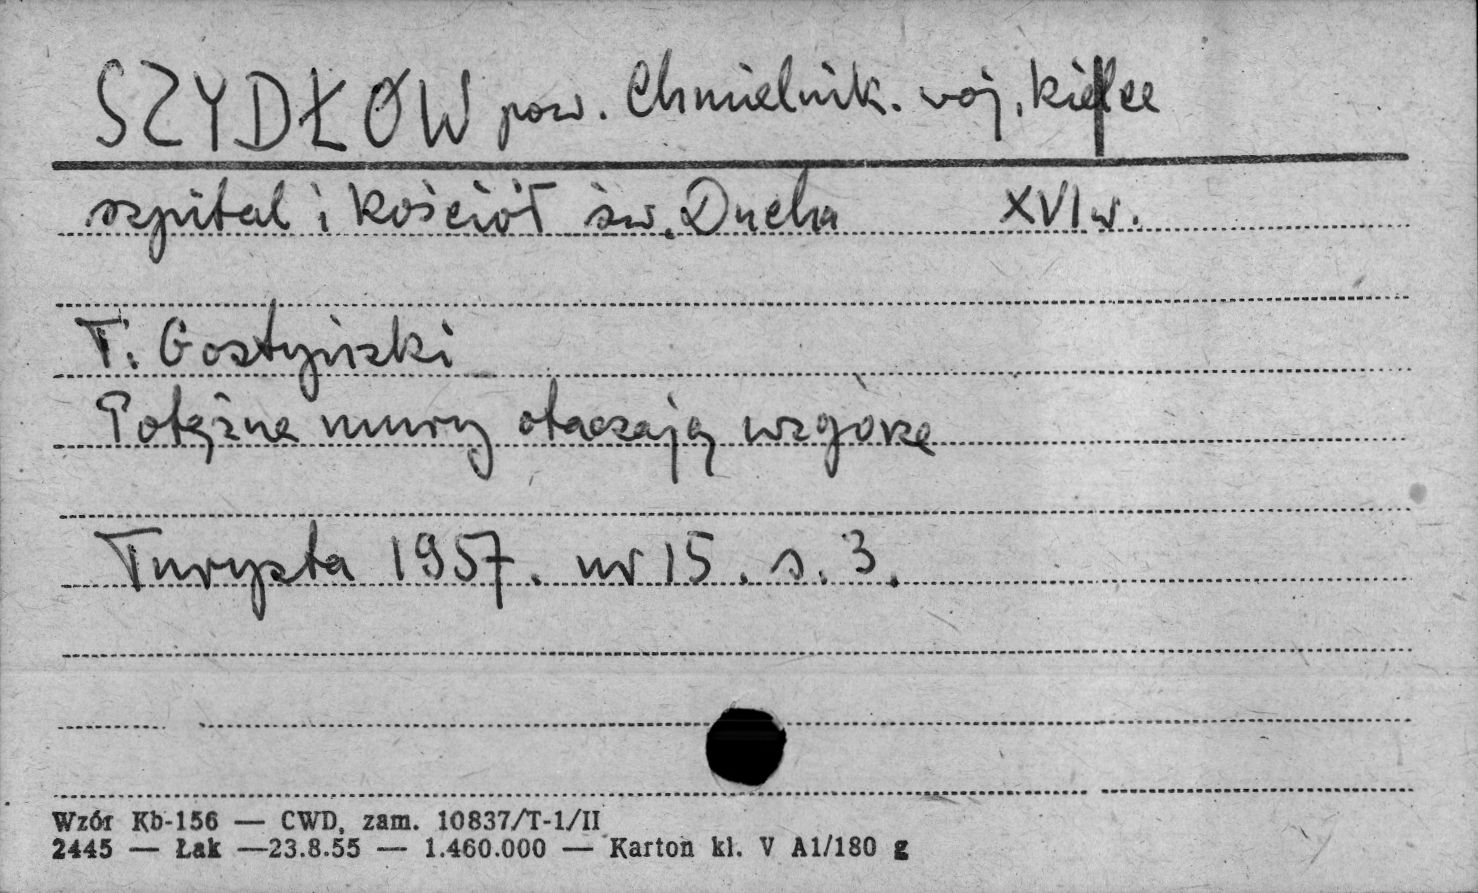 SZYDŁÓW pow. Chmielnik. woj. kielce
szpital i kościół św. Ducha XVI w.
T. Gostyński
Potężne mury otaczają wzgórze
Turysta 1957. nr 15. s. 3.
Wzór Kb-156 — CWD, zam. 10837/T-1/II
2445 — Łak —23.8.55 — 1.460.000 — Karton kl. V A1/180 g